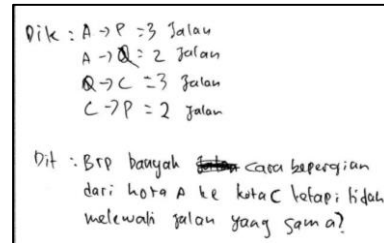 Dik : A -> P = 3 Jalan
A -> Q = 2 Jalan
Q -> C = 3 Jalan
C -> P = 2 Jalan
Dit : Brp banyak cara bepergian
dari kota A ke kota C tetapi tidak
melewati jalan yang sama?